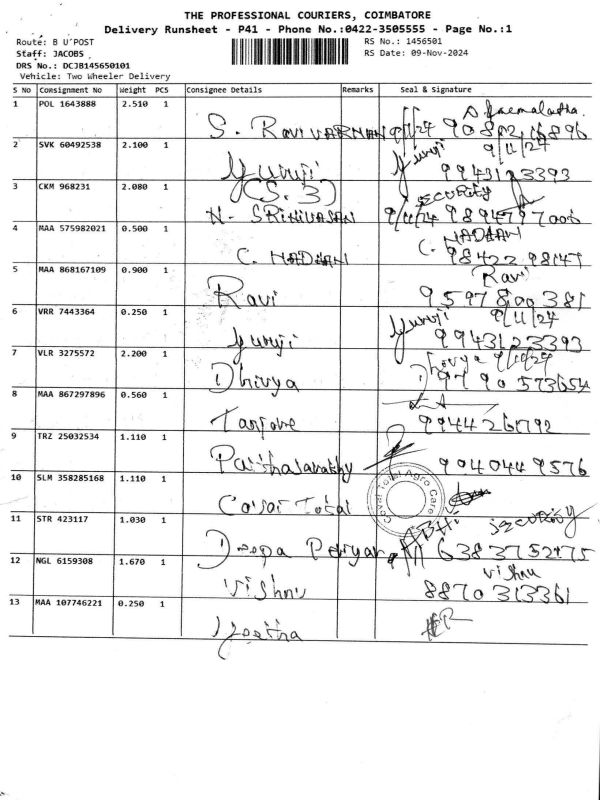 THE PROFESSIONAL COURIERS, COIMBATORE
Delivery Runsheet - P41 - Phone No.:0422-3505555 - Page No.:1
Route: B U'POST
RS No.: 1456501
Staff: JACOBS
RS Date: 09-Nov-2024
DRS No.: DCJB145650101
Vehicle: Two Wheeler Delivery
S No Consignment No Weight PCS Consignee Details Remarks Seal & Signature
1 POL 1643888 2.510 1
S. RAVIVARMAN 9/11/24
2 SVK 60492538 2.100 1 9/11/24
Yuvuji Yuvuji 9943123393
(S.3)
3 CKM 968231 2.080 1 security
N. SRINIVASAN 9/11/24 9894797006
4 MAA 575982021 0.500 1 C. NADHAN
C. NADHAN 98422 98147
5 MAA 868167109 0.900 1 Ravi
Ravi 9597800381
6 VRR 7443364 0.250 1 Yuvuji 9/11/24
Yuvuji 9943123393
7 VLR 3275572 2.200 1 Dhivya
Dhivya 97905 73654
8 MAA 867297896 0.560 1
9944261792
9 TRZ 25032534 1.110 1
9940449576
10 SLM 358285168 1.110 1
Total
11 STR 423117 1.030 1 ABHI security
Deepa 6383752775
12 NGL 6159308 1.670 1 Vishnu
Vishnu 8870313361
13 MAA 107746221 0.250 1